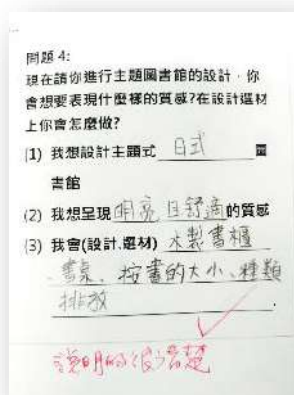 問題 4:
現在請你進行主題圖書館的設計，你
會想要表現什麼樣的質感?在設計選材
上你會怎麼做?
(1) 我想設計主題式 日式 圖
書館
(2) 我想呈現明亮且舒適的質感
(3) 我會(設計.選材) 木製書櫃
、書桌、按書的大小、種類
排放
說明的很清楚